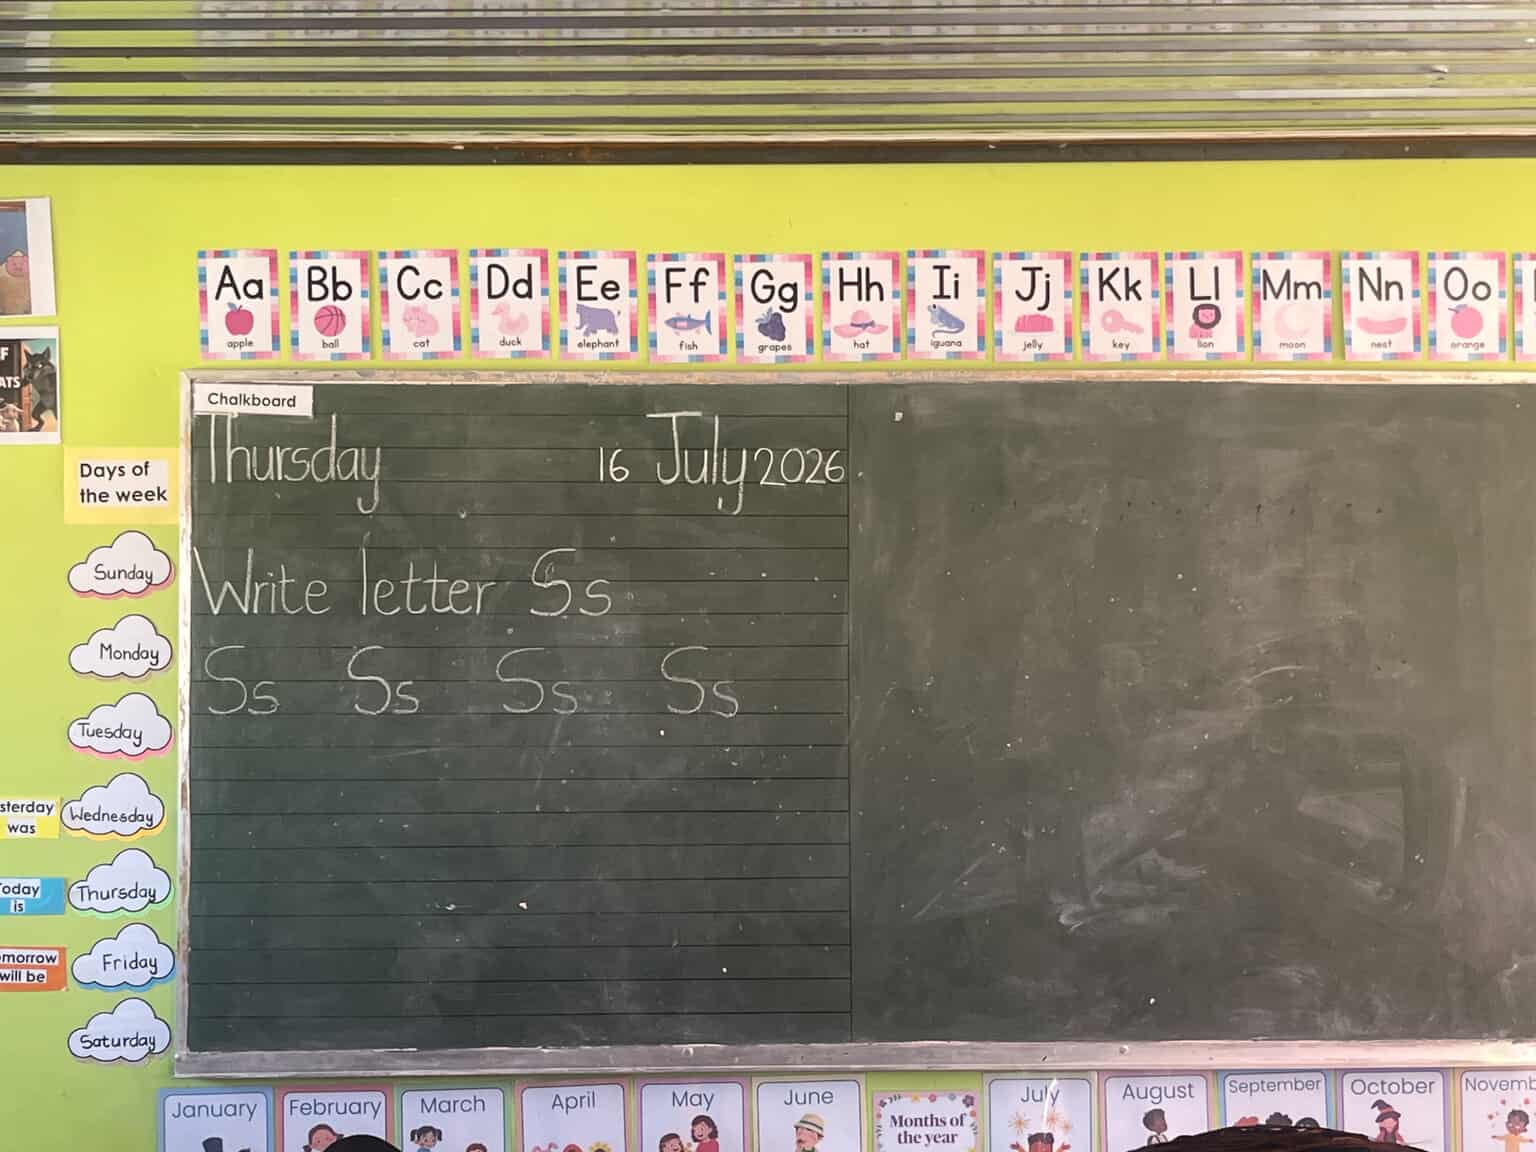 Aa
apple
Bb
ball
Cc
cat
Dd
duck
Ee
elephant
Ff
fish
Gg
grapes
Hh
hat
Ii
iguana
Jj
jelly
Kk
key
Ll
lion
Mm
moon
Nn
nest
Oo
orange
Chalkboard
Thursday 16 July 2026
Write letter Ss
Ss Ss Ss Ss
Days of
the week
Sunday
Monday
Tuesday
Wednesday
Thursday
Friday
Saturday
sterday
was
oday
is
morrow
will be
F
ATS
January
February
March
April
May
June
Months of
the year
July
August
September
October
Novemb